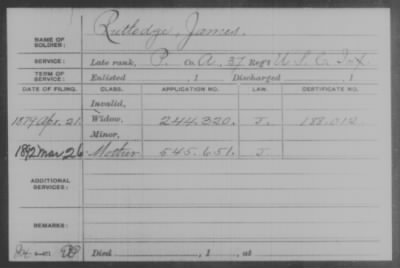 Rutledge, James.
NAME OF SOLDIER:
SERVICE: Late rank, P. Co. A, 37 Reg't U. S. C. Inf.
TERM OF SERVICE: Enlisted , 1 Discharged , 1
DATE OF FILING. CLASS. APPLICATION NO. LAW. CERTIFICATE NO.
Invalid,
1879 Apr. 21. Widow, 244.320. J. 188.012
Minor,
1892 Mar 26 Mother 545.651. J.
ADDITIONAL SERVICES:
REMARKS:
Died , 1 , at